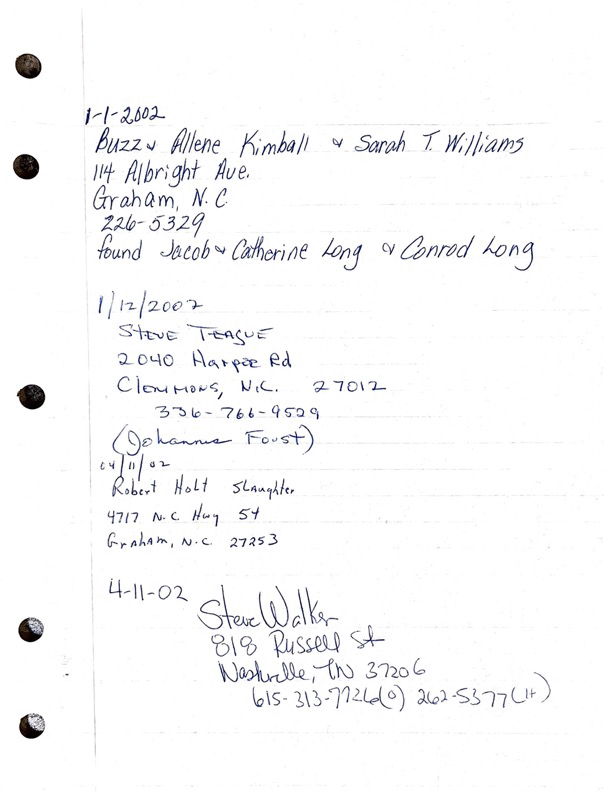 1-1-2002
Buzz & Allene Kimball & Sarah T. Williams
114 Albright Ave.
Graham, N.C.
226-5329
found Jacob & Catherine Long & Conrod Long
1/12/2002
STEVE TEAGUE
2040 Harper Rd
Clemmons, N.C. 27012
336-766-9529
(Johannes Foust)
04/11/02
Robert Holt Slaughter
4717 N.C. Hwy 54
Graham, N.C. 27253
4-11-02
Steve Walker
818 Russell St
Nashville, TN 37206
615-313-7726(o) 262-5377(H)